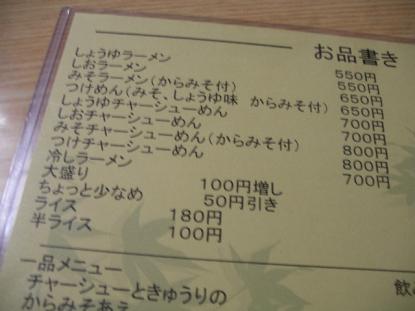 お品書き
しょうゆラーメン 550円
しおラーメン 550円
みそラーメン(からみそ付) 650円
つけめん(みそ、しょうゆ味 からみそ付) 650円
しょうゆチャーシューめん 700円
しおチャーシューめん 700円
みそチャーシューめん(からみそ付) 800円
つけチャーシューめん 800円
冷しラーメン 700円
大盛り 100円増し
ちょっと少なめ 50円引き
ライス 180円
半ライス 100円
一品メニュー
チャーシューときゅうりの
からみそあえ
飲み